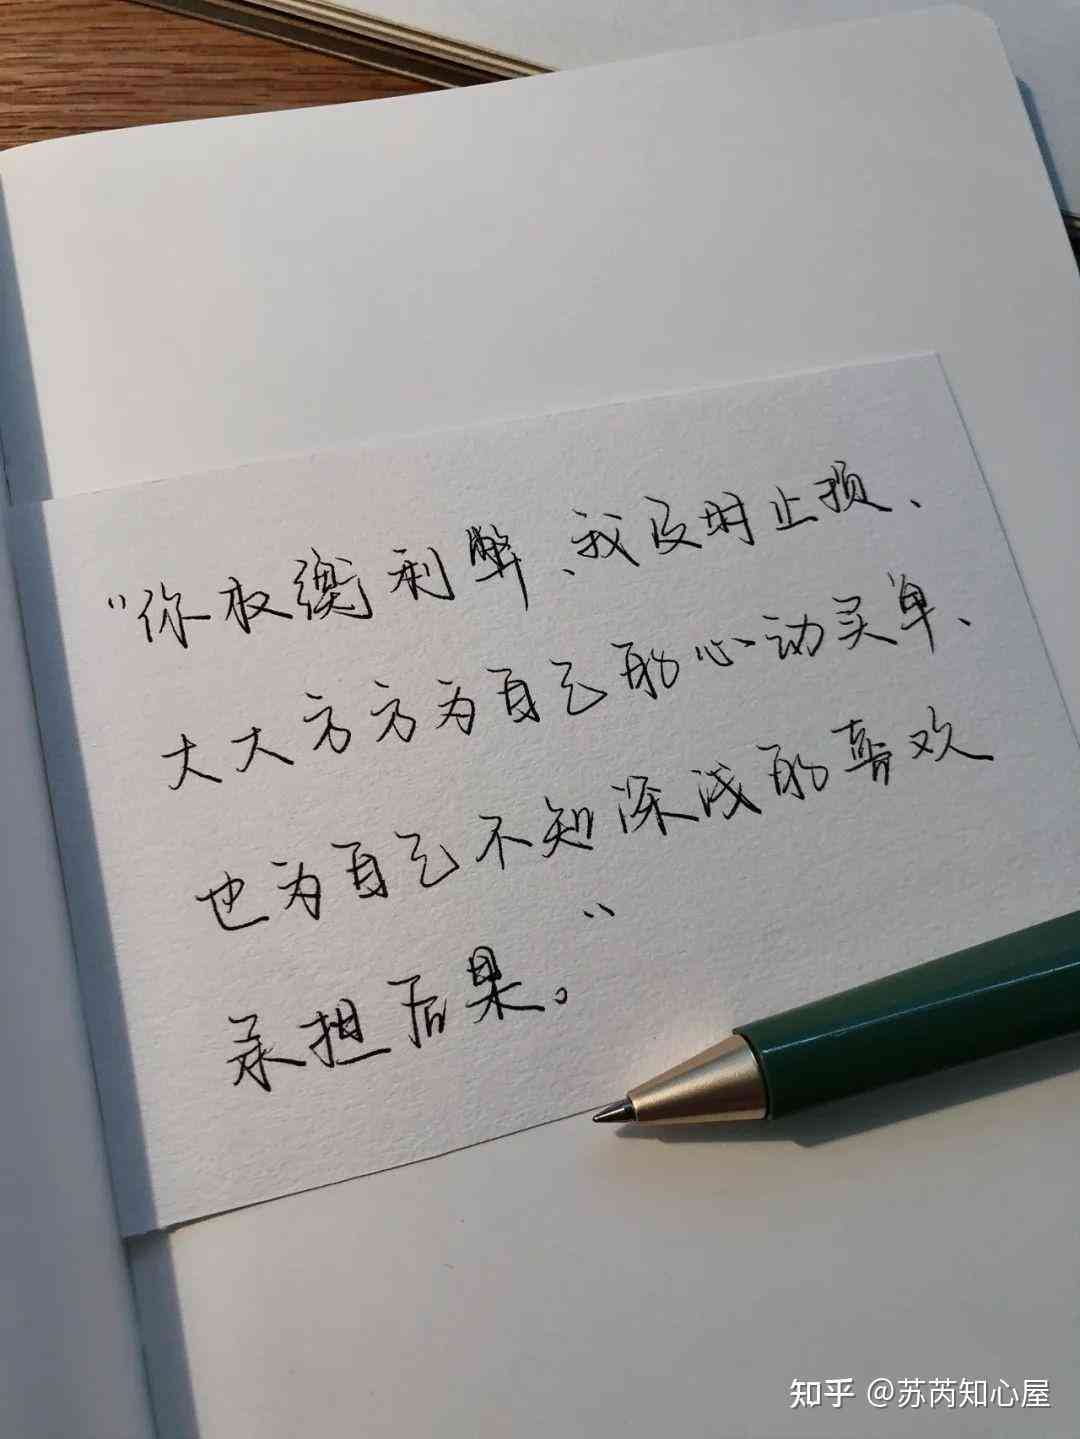 “你权衡利弊、我及时止损、
大大方方为自己的心动买单、
也为自己不知深浅的喜欢
承担后果。”
知乎 @苏芮知心屋